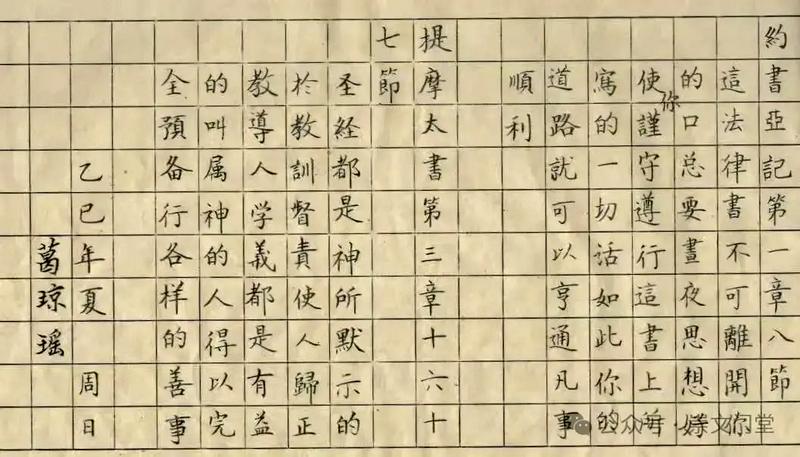 約書亞記第一章八節
這法律書不可離開你
的口总要晝夜思想好
使你謹守遵行這書上
寫的一切話如此你的
道路就可以亨通凡事
順利
提摩太書第三章十六十
七節
圣経都是神所默示的
於教訓督責使人歸正
教導人学義都是有益
的叫属神的人得以完
全預备行各样的善事
乙巳年夏 周日
葛琼瑶
公众号